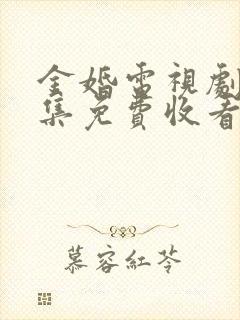 金婚電視劇
集免費收看
慕容紅苓